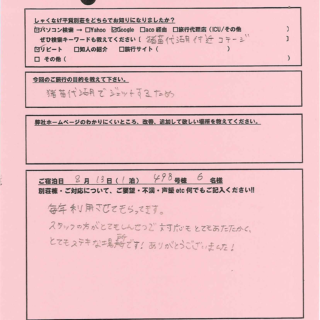 しゃくなげ平貸別荘をどちらでお知りになりましたか？
☑パソコン検索 → □Yahoo ☑Google □aco 経由 □旅行代理店（ICU/その他 ）
ぜひ検索キーワードも教えてください（ 猪苗代湖付近 コテージ ）
☑リピート □知人の紹介 □旅行サイト（ ）
□ その他（ ）
今回のご旅行の目的を教えて下さい。
猪苗代湖でジェットするため
弊社ホームページのわかりにくいところ、改善、追加して欲しい場所を教えてください。
ご宿泊日 8月13日（1泊） 493号棟 6名様
別荘棟・ご対応について、ご要望・不満・声援 etc 何でもご記入ください!!
毎年利用させてもらってます。
スタッフの方がとてもしんせつで対応もとてもあたたかく、
とてもステキな場所です！ありがとうございました！